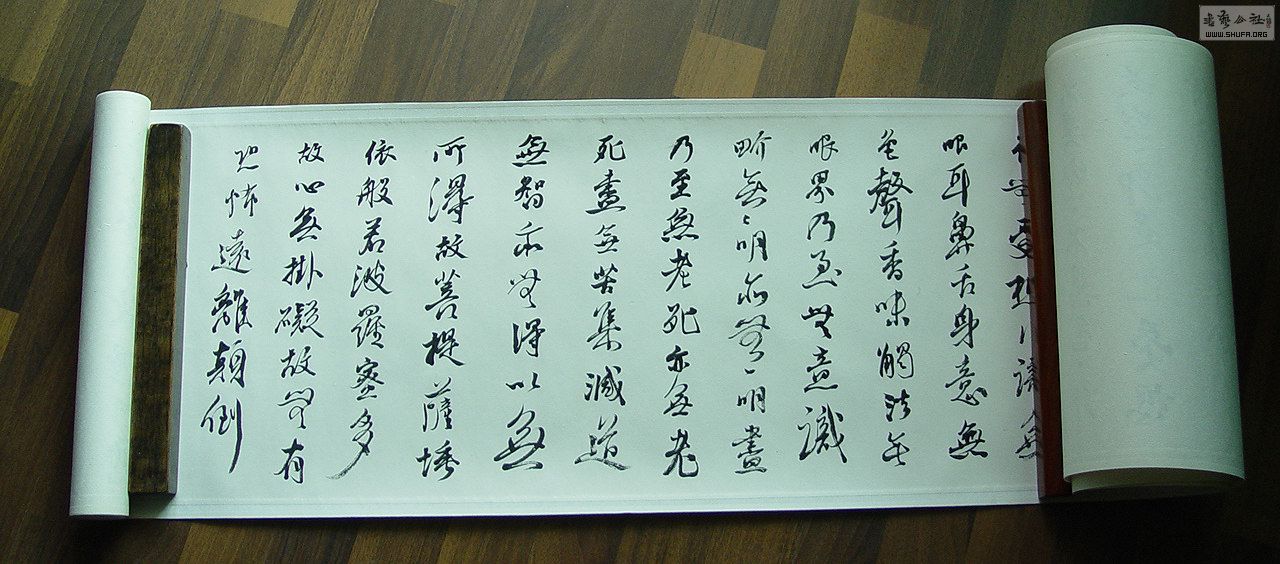 無受想行識無
眼耳鼻舌身意無
色聲香味觸法無
眼界乃至無意識
畍無〻明亦無〻明盡
乃至無老死亦無老
死盡無苦集滅道
無智亦無得以無
所得故菩提薩埵
依般若波羅蜜多
故心無掛礙故無有
恐怖遠離顛倒
书艺公社
WWW.SHUFA.ORG